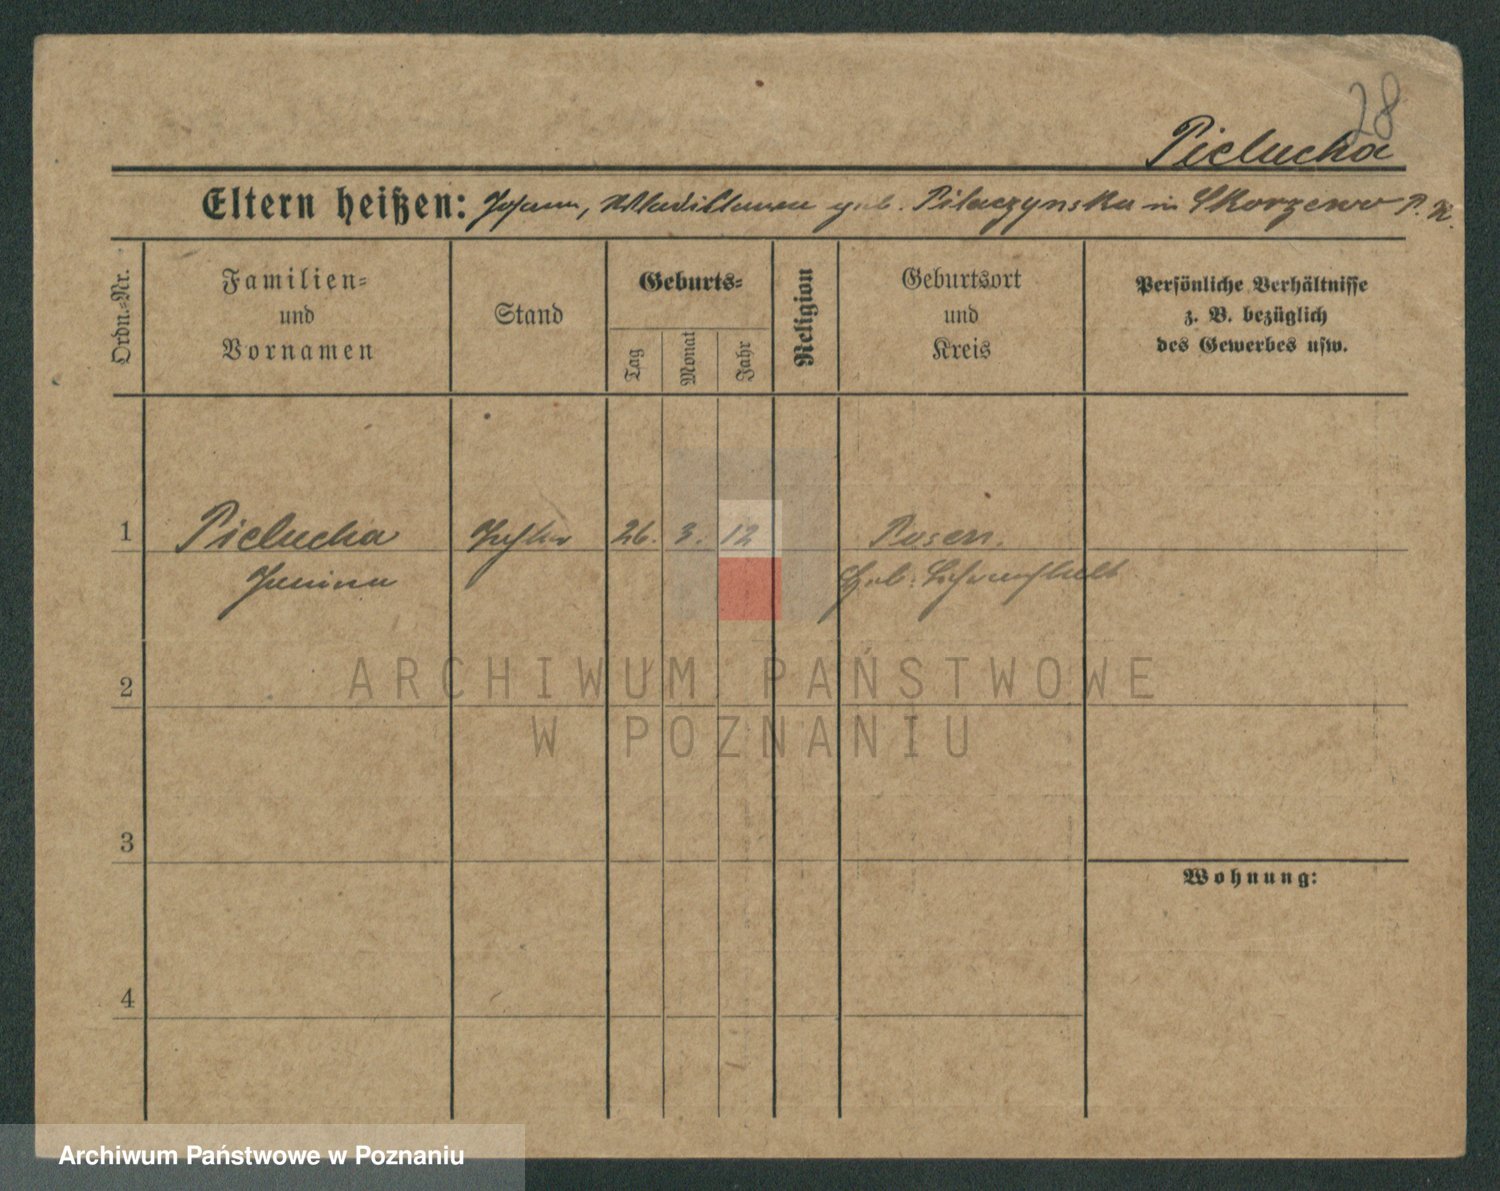 28
Pielucha
Eltern heißen: Johann, Wladislawa geb. Pilaczynska in Skorzewo P. W.
Ordn.-Nr.
Familien-
und
Vornamen
Stand
Geburts-
Tag
Monat
Jahr
Religion
Geburtsort
und
Kreis
Persönliche Verhältnisse
z. B. bezüglich
des Gewerbes usw.
1
Pielucha
Tochter
26. 3. 12
Posen.
Janina
Geb.
2
ARCHIWUM PAŃSTWOWE
W POZNANIU
3
Wohnung:
4
Archiwum Państwowe w Poznaniu